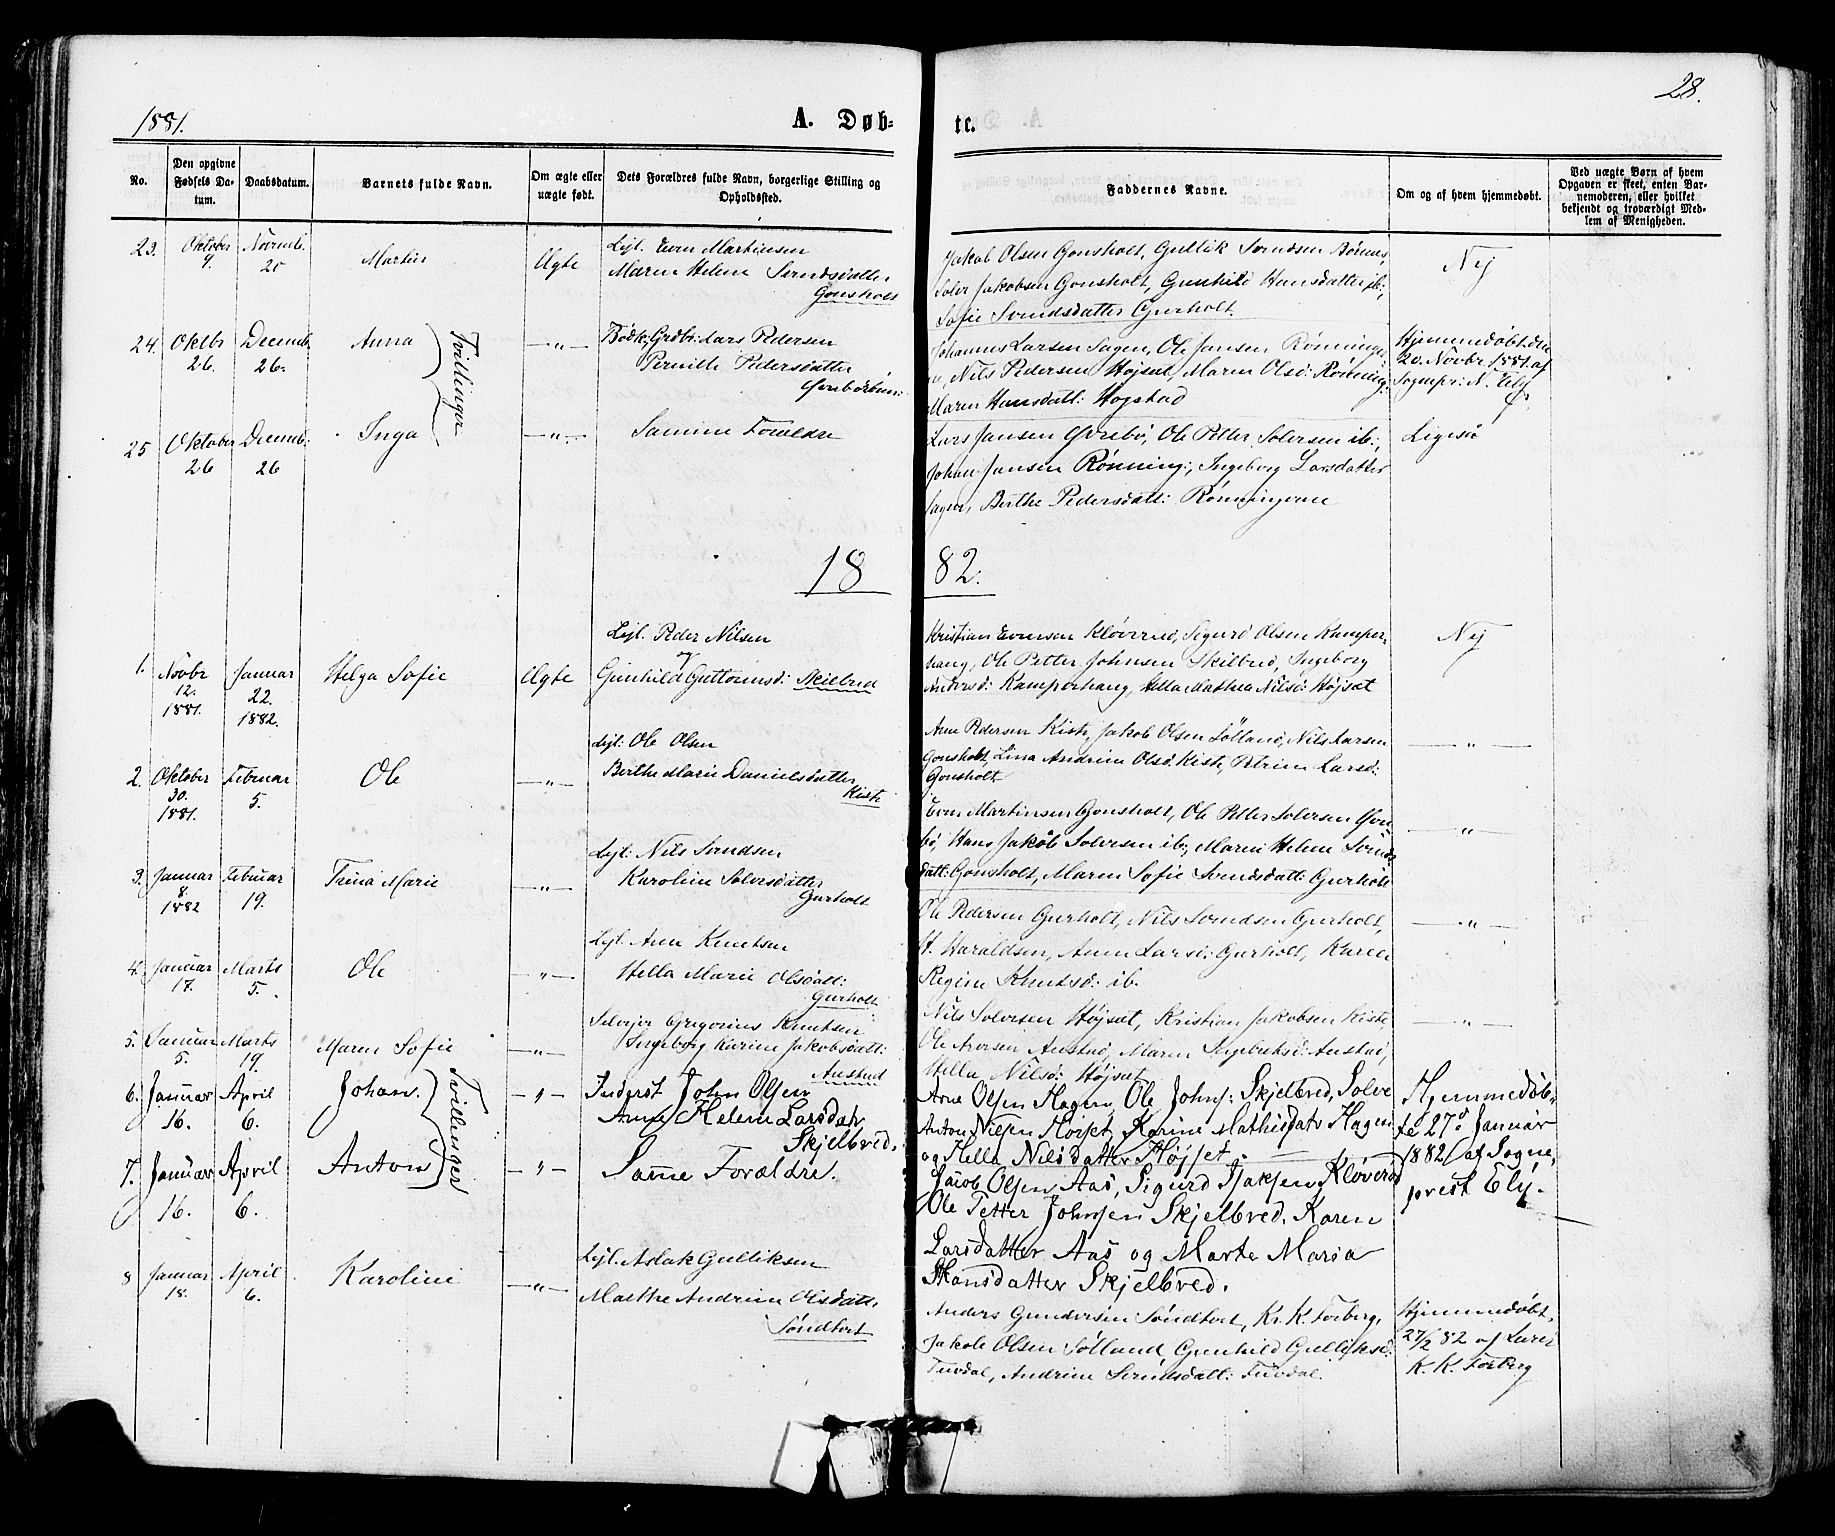 28.
1881.
A. Døb-
te.
No.
Den opgivne Fødsels Da-tum.
Daabsdatum.
Barnets fulde Navn.
Om ægte eller uægte født.
Dets Forældres fulde Navn, borgerlige Stilling og Opholdssted.
Faddernes Navne.
Om og af hvem hjemmedøbt.
Ved uægte Børn af hvem Opgaven er skeet, enten Bar-nemoderen, eller hvilket bekjendt og troværdigt Med-lem af Menigheden.
23. Oktober 9. Novemb. 20 Martin Ægte
Lejl. Even Martinsen
Maren Helene Svendsdatter
Gonsholt
Jakob Olsen Gonsholt, Gullik Svendsen
Jakobsen Gonsholt, Gunhild Hansdatter ib:,
Sofie Svendsdatter Gurholt.
Nej
24. Oktbr 26. Decemb. 26. Anna
Tvillinger
—"—
Lars Pedersen
Pernille Pedersdatter
Johannes Larsen Sagen, Ole Jansen Rønninge
, Nils Pedersen Højset, Maren Olsd: Rønning:
Maren Hansdatt: Hogstad
Hjemmedøbt den
20. Novbr 1881. af
Sognepr: N. Ely
25 Oktober 26 Decemb: 26 Inga —"—
Samme Forældre
Lars Jansen Gvrebø, Ole Petter Solvesen ib:,
Johan Jansen Rønning:, Ingeborg Larsdatter
Sagen, Berthe Pedersdatt: Rønningene
Ligesaa
18 82.
1. Novbr 12. 1881. Januar 22. 1882. Helga Sofie Ægte
Lejl. Peder Nilsen
og
Gunhild Guttormsd: Skilbred
Kristian Evensen Kløverød, Sigurd Olsen Kamper-
haug, Ole Petter Johnsen Skilbred, Ingeborg
Andersd: Kamperhaug, Hella Mathea Nilsd: Højset
Nej
2. Oktober 30. 1881. Februar 5. Ole —"—
Lejl: Ole Olsen
Berthe Marie Danielsdatter
Kiste
Arne Pedersen Kiste, Jakob Olsen Sølland, Nils Larsen
Gonsholt, Lina Andrine Olsd: Kiste, Petrine Larsd:
Gonsholt
—"—
3. Januar 8. 1882 Februar 19. Trina Marie —"—
Lejl: Nils Svendsen
Karoline Solvesdatter
Gurholt
Even Martinsen Gonsholt, Ole Petter Solvesen Gvre
bø, Hans Jakob Solvesen ib:, Maren Helene Svends
datt: Gonsholt, Maren Sofie Svendsdatt: Gurholt
—"—
4. Januar 17. Marts 5. Ole —"—
Lejl. Arne Knutsen
Hella Marie Olsdatt:
Gurholt
Ole Pedersen Gurholt, Nils Svendsen Gurholt,
H. Haraldsen, Anne Larsd: Gurholt, Karen
Regine Knutsd: ib.
—"—
5. Januar 5. Marts 19. Maren Sofie —"—
Selvejer Gregorius Knutsen
Ingeborg Karine Jakobsdatt:
Austad
Nils Solvesen Højset, Kristian Jakobsen Kiste,
Ole Austad, Maren Ingebretsd: Austad,
Hella Nilsd: Højset
—"—
6. Januar 16. April 6. Johan.
Tvillinger
—"—
Inderst John Olsen
Anne Helene Larsdatr
Skjelbred.
Arne Olsen Hagen, Ole Johns: Skjelbred, Solve
Anton Nilsen Højset, Karine Mathisdatr Hagen
og Hella Nilsdatter Højset. —
Hjemmedøb-
te 27de Januar
1882 af Sogne-
prest Ely.
7. Januar 16. April 6. Anton —"—
Samme Forældre.
Jacob Olsen Aas, Sigurd Isaksen Kløverød
Ole Petter Johnsen Skjelbred, Karen
Larsdatter Aas og Marte Maria
Hansdatter Skjelbred.
8 Januar 18. April 6. Karoline —"—
Lejl. Aslak Gulliksen
Marthe Andrine Olsdatt.
Søndtort
Anders Gundersen Søndtort, Kr. K. Forberg,
Jakob Olsen Sølland, Gunhild Gulliksd:
Tuvdal, Andrine Svendsdatt: Tuvdal.
Hjemmedøbt,
27/2 82 af Lærer
K. K. Forberg